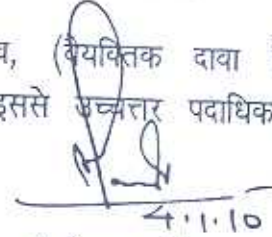 (वैयक्तिक दावा
इससे उच्चत्तर पदाधिक
4.1.10